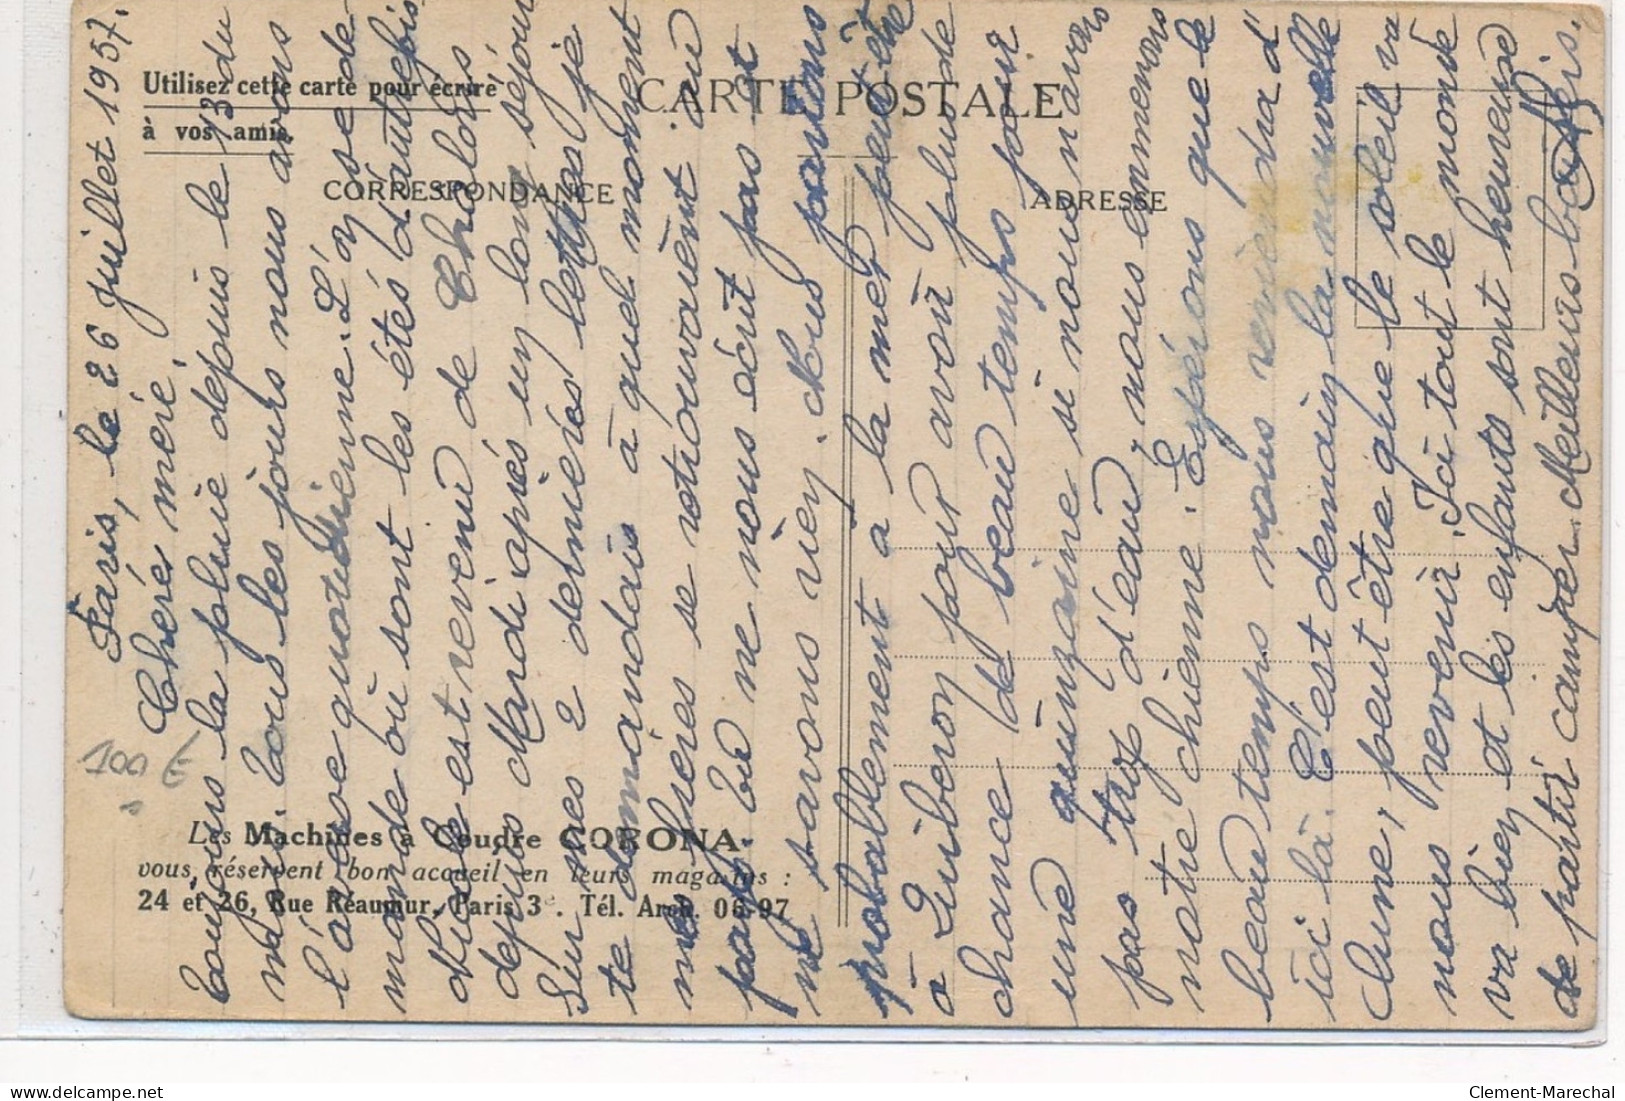 Utilisez cette carte pour écrire
à vos amis.
CARTE POSTALE
CORRESPONDANCE
ADRESSE
Les Machines à Coudre CORONA
vous réservent bon accueil en leurs magasins :
24 et 26, Rue Réaumur, Paris 3e. Tél. Arch. 06-97
Paris, le 26 Juillet 1957.
Chère mère,
Toujours la pluie depuis le 13 du
mois. Tous les jours nous avons
l'averse quotidienne. L'on se de-
mande où sont les étés d'autrefois.
Nicole est revenu de Chalons
depuis Mardi après un long séjour
Sur mes 2 dernières lettres je
te demandais à quel moment
mes frères se retrouvaient au
pays. Tu ne nous écrit pas et
ne savons rien. Nous partons
probablement à la mer peut être
à Quiberon pour avoir plus de
chance de beau temps pour
une quinzaine si nous n'avons
pas trop d'eau, nous emmenons
notre chienne. Espérons que le
beau temps nous reviendra d'
ici là. C'est demain la nouvelle
lune, peut être que le soleil va
nous revenir. Ici tout le monde
va bien et les enfants sont heureux
de partir camper. Meilleurs baisers.
100 €
Clement-Marechal